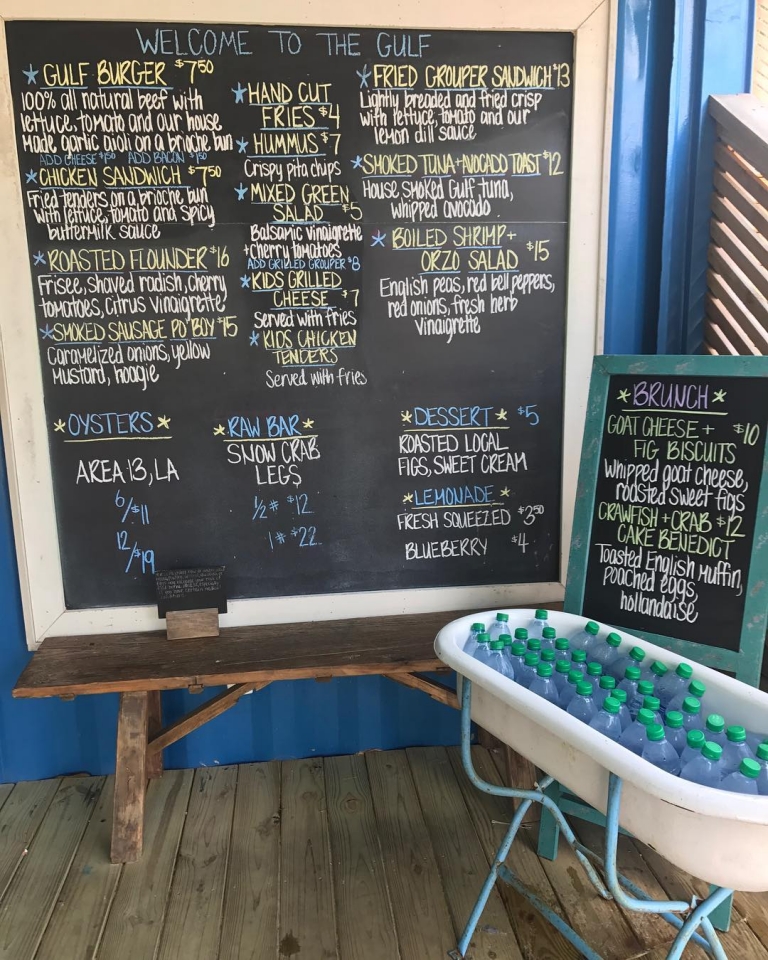 WELCOME TO THE GULF
GULF BURGER $7.50
100% all natural beef with
lettuce, tomato and our house
made garlic aioli on a brioche bun
ADD CHEESE $1.50 ADD BACON $1.50
CHICKEN SANDWICH $7.50
Fried tenders on a brioche bun
with lettuce, tomato and spicy
buttermilk sauce
ROASTED FLOUNDER $16
Frisee, shaved radish, cherry
tomatoes, citrus vinaigrette
SMOKED SAUSAGE PO'BOY $15
Caramelized onions, yellow
mustard, hoagie
HAND CUT
FRIES $4
HUMMUS $7
Crispy pita chips
MIXED GREEN
SALAD $5
Balsamic vinaigrette
+ cherry tomatoes
ADD GRILLED GROUPER $8
KIDS GRILLED
CHEESE $7
Served with fries
KIDS CHICKEN
TENDERS
Served with fries
FRIED GROUPER SANDWICH $13
Lightly breaded and fried crisp
with lettuce, tomato and our
lemon dill sauce
SMOKED TUNA + AVOCADO TOAST $12
House smoked Gulf tuna,
whipped avocado
BOILED SHRIMP +
ORZO SALAD $15
English peas, red bell peppers,
red onions, fresh herb
vinaigrette
OYSTERS
AREA 13, LA
6/$11
12/$19
RAW BAR
SNOW CRAB
LEGS
1/2# $12
1# $22
DESSERT $5
ROASTED LOCAL
FIGS, SWEET CREAM
LEMONADE
FRESH SQUEEZED $3.50
BLUEBERRY $4
BRUNCH
GOAT CHEESE + $10
FIG BISCUITS
Whipped goat cheese,
roasted sweet figs
CRAWFISH + CRAB $12
CAKE BENEDICT
Toasted English muffin,
poached eggs,
hollandaise